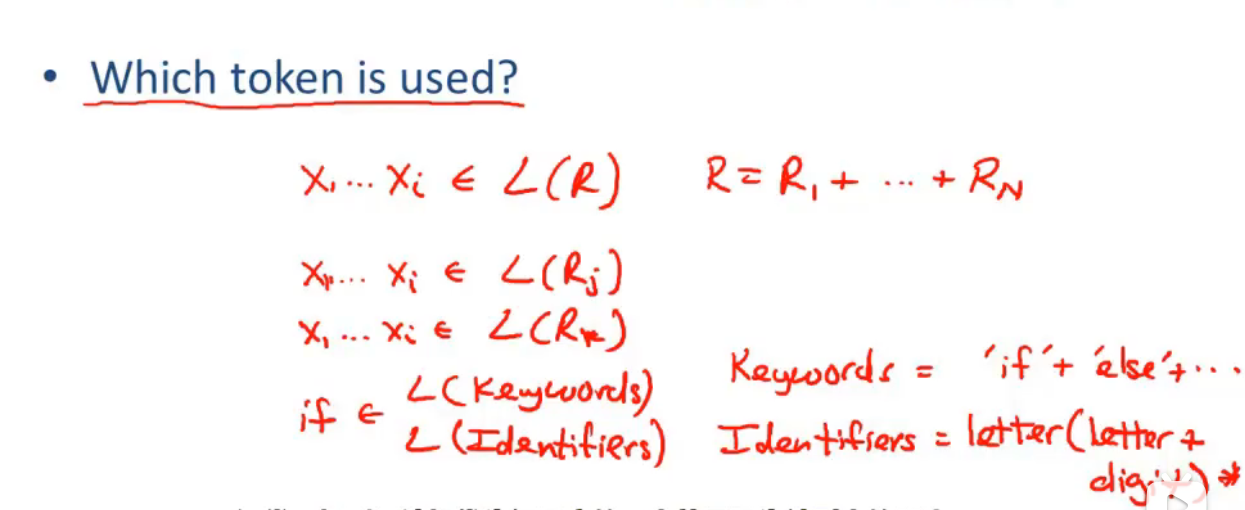 • Which token is used?
x₁ ... xᵢ ∈ L(R) R = R₁ + ... + R_N
x₁ ... xᵢ ∈ L(Rⱼ)
x₁ ... xᵢ ∈ L(Rₖ)
if ∈ L(Keywords) Keywords = 'if' + 'else' + ...
L(Identifiers) Identifiers = letter(letter +
digit)*